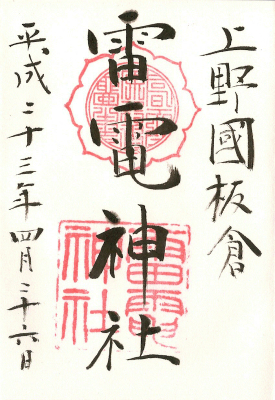 上野國板倉
雷電神社
平成二十三年四月二十六日
雷電
神社